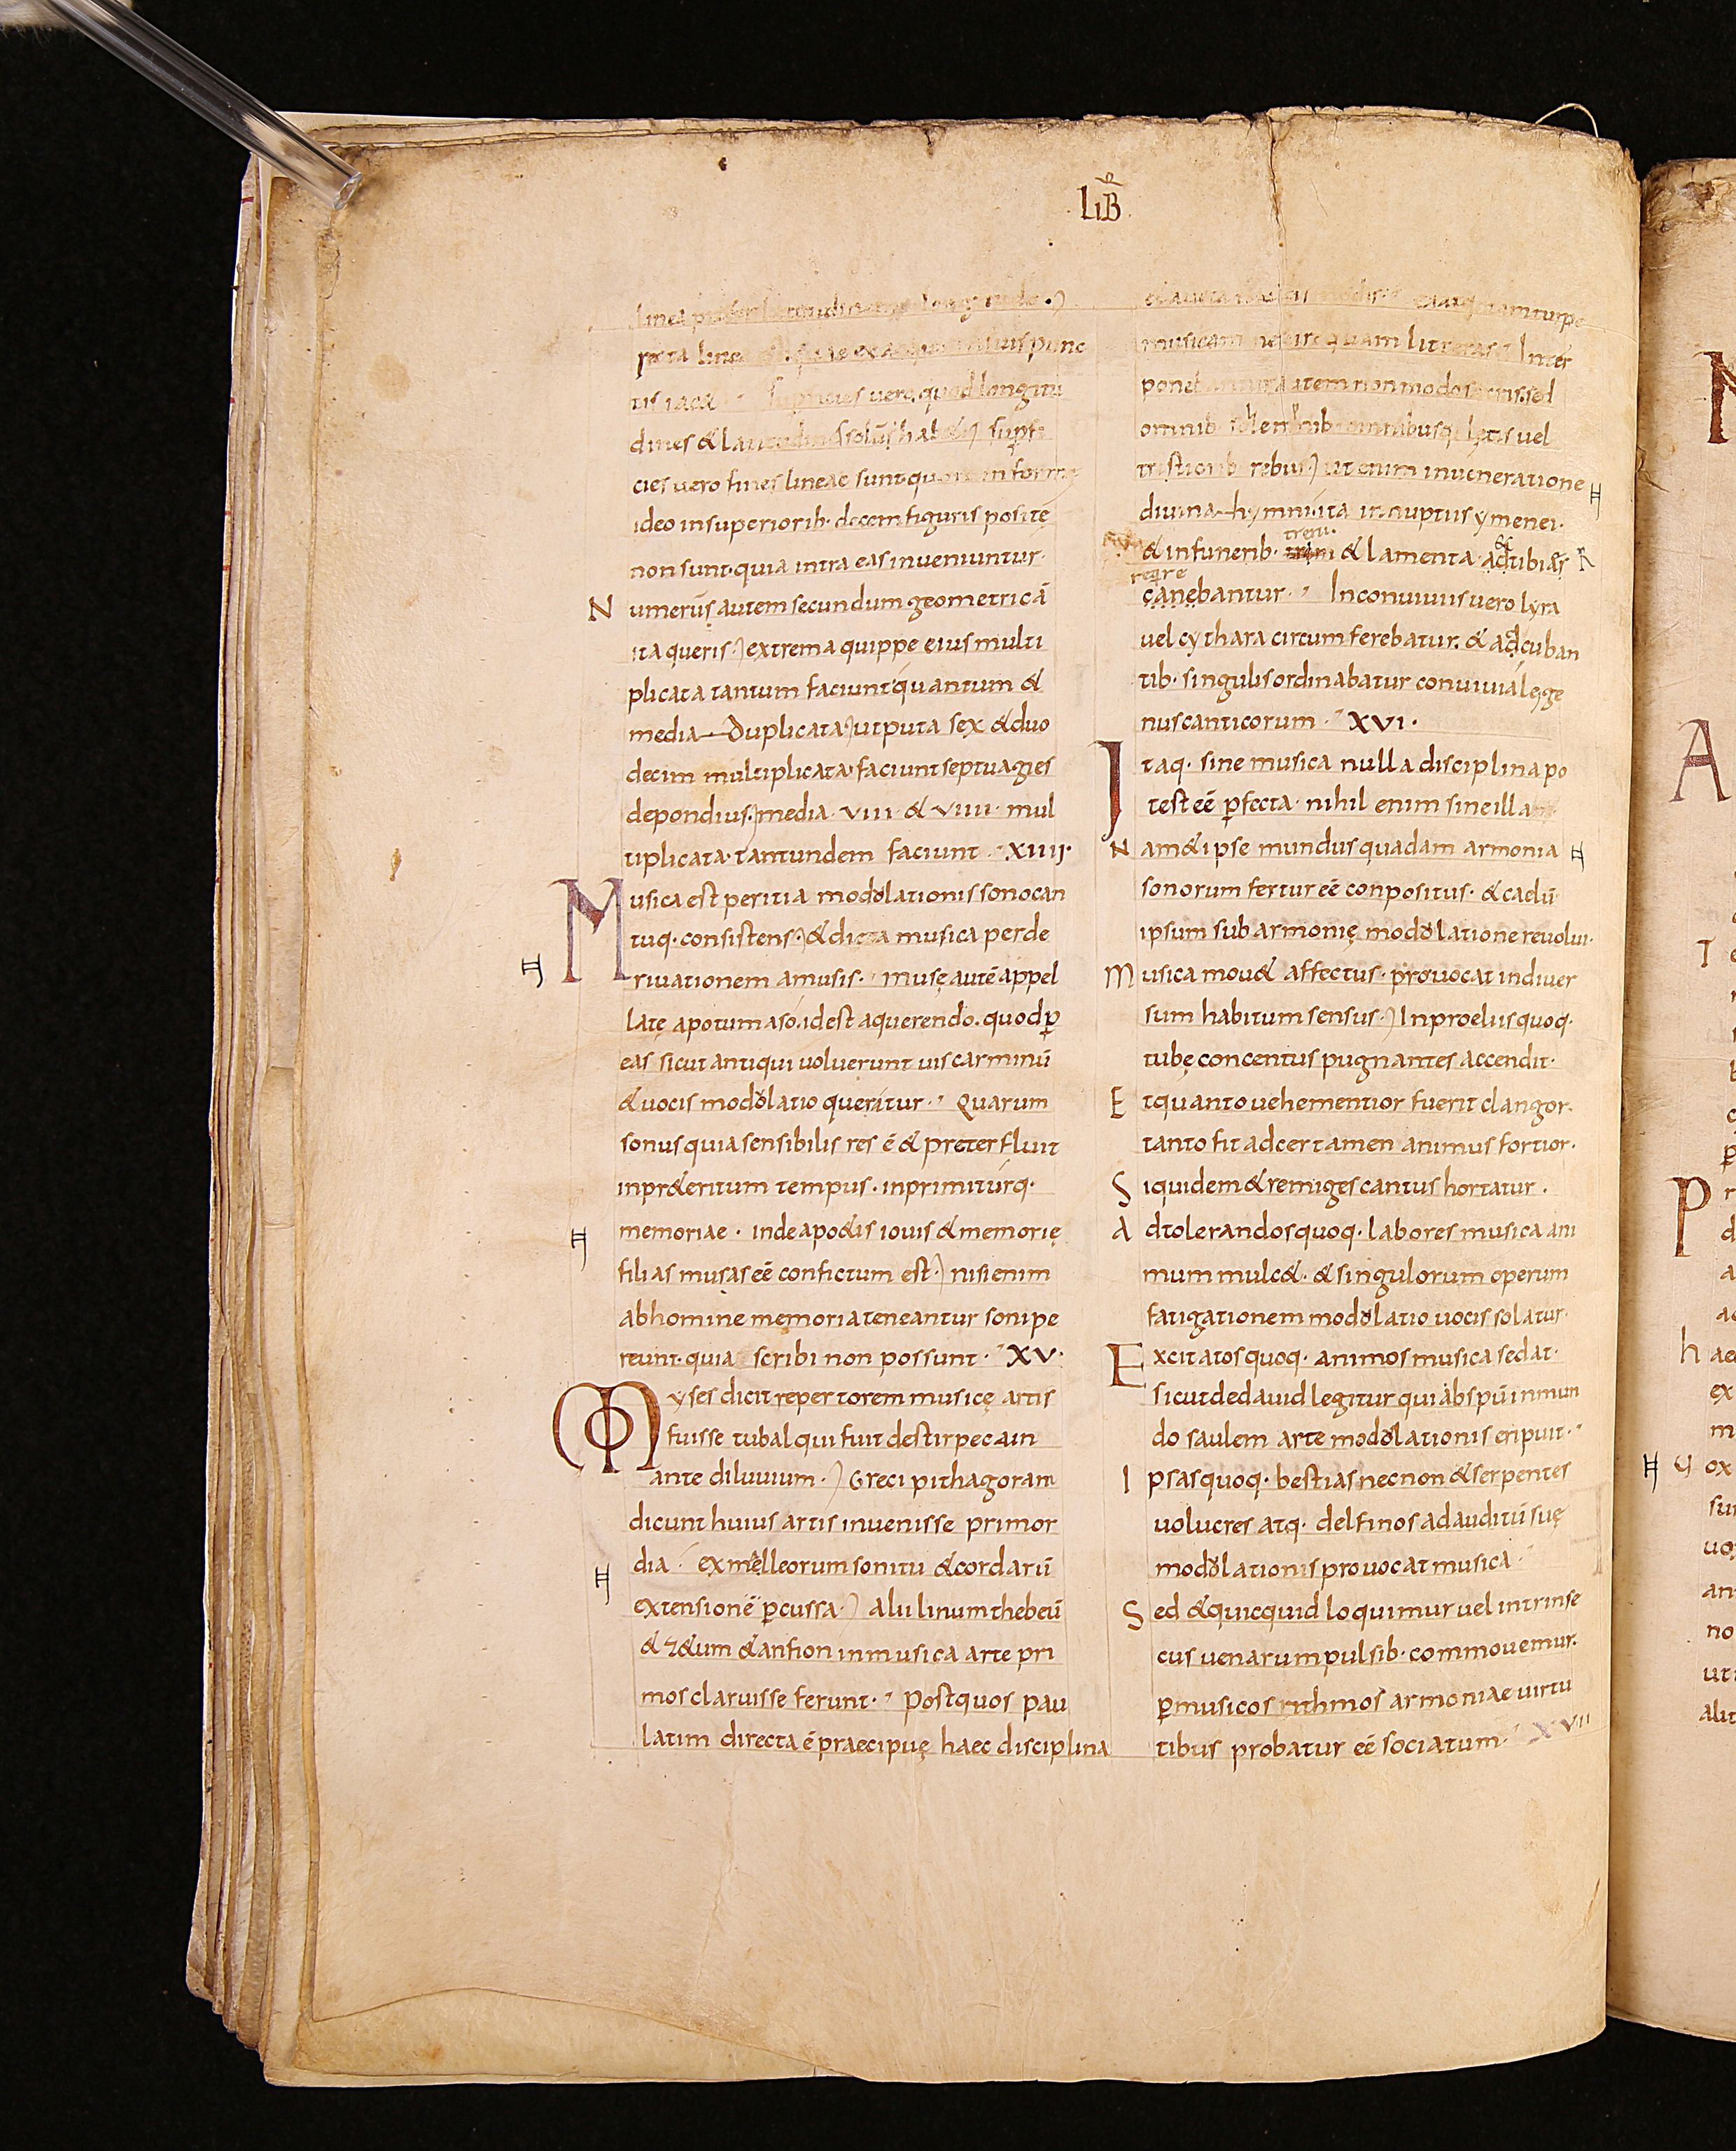 LIB̄
linea
recta line punc
tis iac& uero quod longitu
dines & latitudines solū̄s hab& supfi
cies uero fines lineae sunt quor in forme
ideo in superiorib· decem figuris positę
non sunt· quia intra eas inueniuntur·
Numerūs autem secundum geometricā
ita queris·) extrema quippe eius multi
plicata tantum faciunt quantum &
media duplicata) ut puta sex & duo
decim multiplicata faciunt septuagies
depondius·) media · VIII · & VIIII · mul
tiplicata· tantundem faciunt · XIIII·
Musica est peritia modolationis sono can
tuq· consistens·) & dicta musica per de
riuationem a musis·· musę autē appel
latę apotumaso· id est a querendo· quod ꝑ
eas sicut antiqui uoluerunt uis carminū
& uocis modolatio queritur·· Quarum
sonus quia sensibilis res ē & preterfluit
in pr&eritum tempus· inprimiturq·
memoriae · inde apo&is iouis & memorię
filias musas eē confictum est·) nisi enim
ab homine memoria teneantur soni pe
reunt· quia scribi non possunt · XV·
Moyses dicit repertorem musicę artis
fuisse tubal qui fuit de stirpe cain
ante diluuium·) Greci pithagoram
dicunt huius artis inuenisse primor
dia · ex melleorum sonitu & cordarū
extensionē ꝑcussa·) alii linum thebeū
& z&um & anfion in musica arte pri
mos claruisse ferunt·· Post quos pau
latim directa ē praecipuę haec disciplina
turpe
musicam nescire quam litteras · Inter
poneb autem non modo sacris· sed
omnib· omnibusq· letis uel
tristiorib· rebus·) ut enim in ueneratione
diuina hymni· ita in nuptiis ymenei·
treni·
& in funerib· & lamenta · ad tibias
canebantur · In conuiuiis uero lyra
uel cythara circumferebatur· & adcuban
tib· singulis ordinabatur conuiuiale ge
nus canticorum · XVI·
Itaq· sine musica nulla disciplina po
test eē ꝑfecta· nihil enim sine illa
Nam & ipse mundus quadam armonia
sonorum fertur eē conpositus· & caelū
ipsum sub armonię modolatione reuolui·
Musica mou& affectus· prouocat in diuer
sum habitum sensus·) In proeliis quoq·
tubę concentus pugnantes accendit·
Et quanto uehementior fuerit clangor·
tanto fit ad certamen animus fortior·
Siquidem & remiges cantus hortatur·
Ad tolerandos quoq· labores musica ani
mum mulc&· & singulorum operum
fatigationem modolatio uocis solatur·
Excitatos quoq· animos musica sedat·
sicut de dauid legitur qui ab spū inmun
do saulem arte modolationis eripuit·
Ipsas quoq· bestias necnon & serpentes
uolucres atq· delfinos ad auditū suę
modolationis prouocat musica·
Sed & quicquid loquimur uel intrinse
cus uenarum pulsib· commouemur·
ꝑ musicos rithmos armoniae uirtu
tibus probatur eē sociatum· XVII